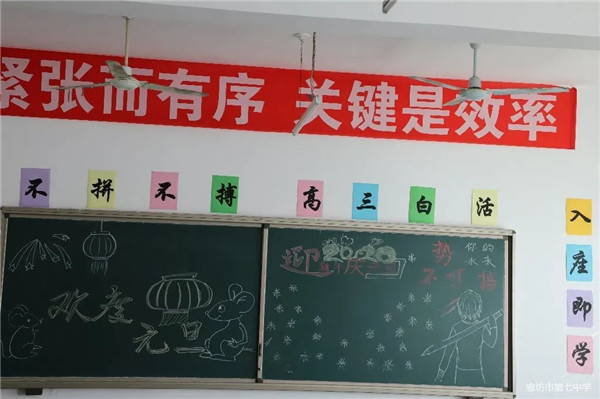 紧张而有序 关键是效率
不拼不搏 高三白活
入座即学
欢度
元旦
迎 2020
你的
未来
势
不可挡
廊坊市第七中学